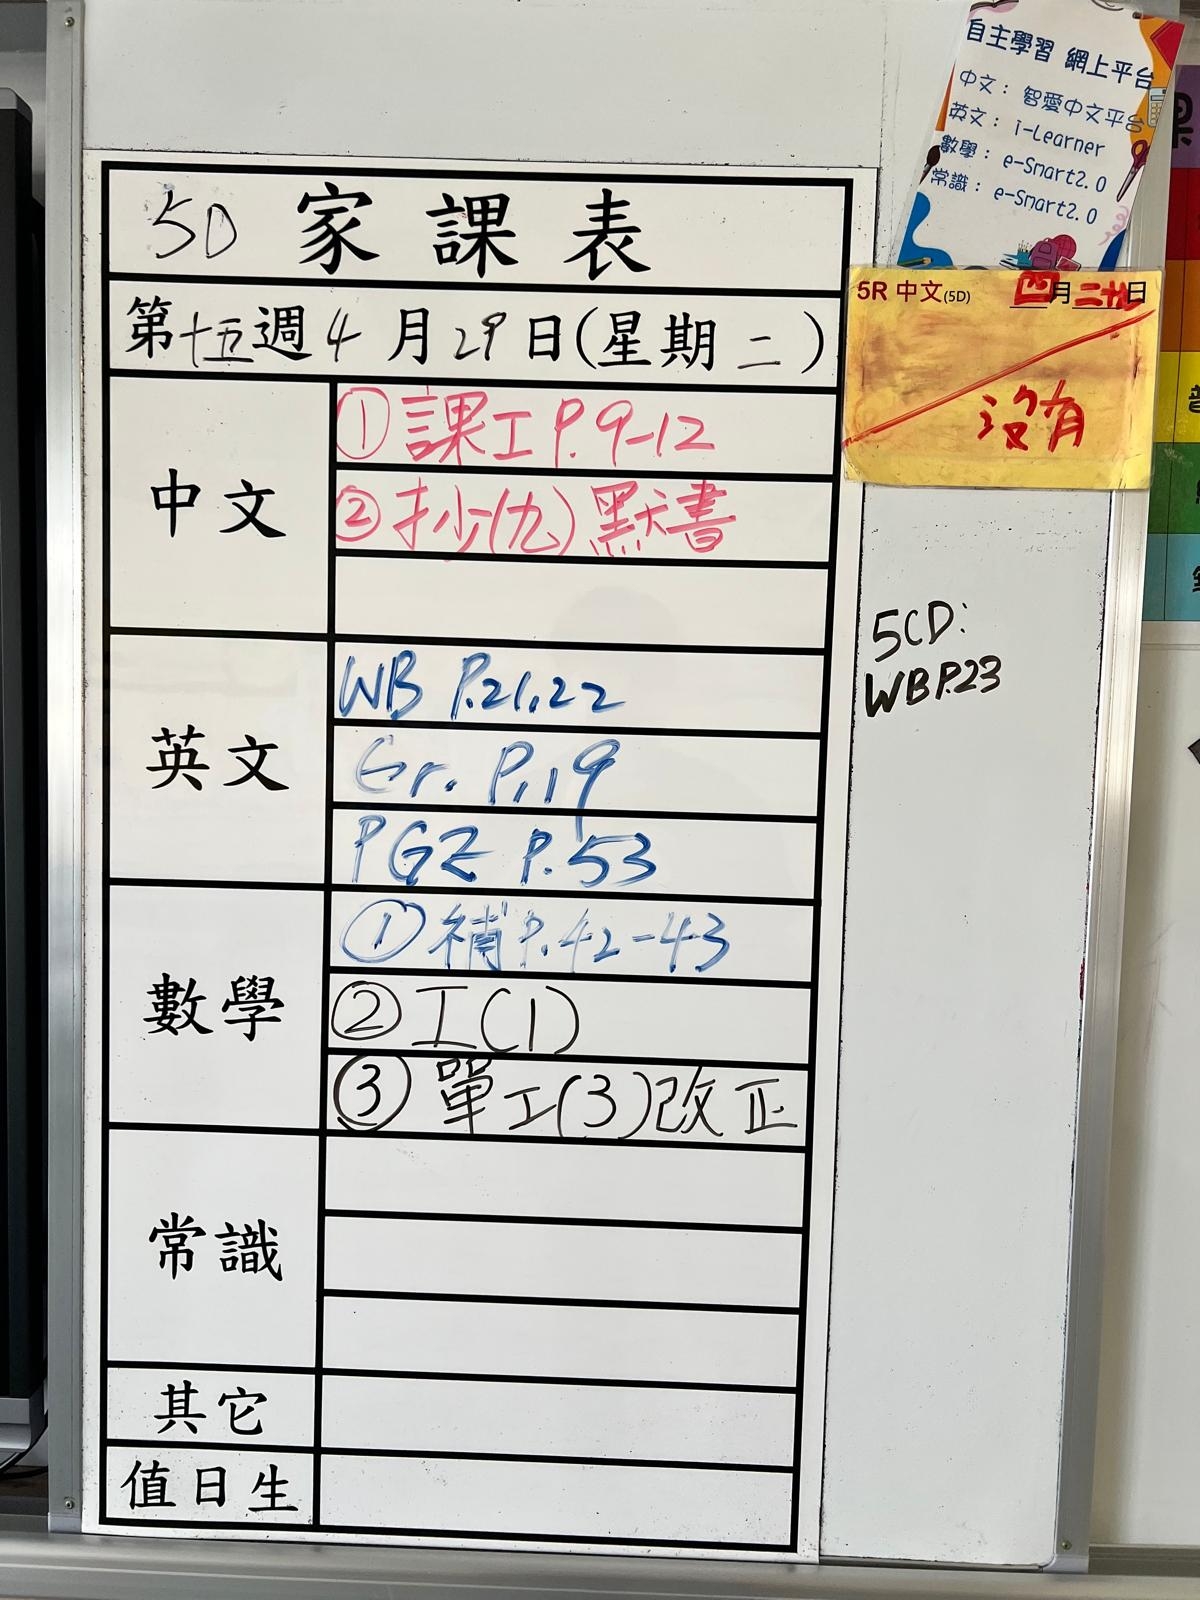 自主學習 網上平台
中文： 智愛中文平台
英文： i-Learner
數學： e-Smart2.0
常識： e-Smart2.0
5D 家課表
第十五週4月29日(星期二)
5R 中文(5D) 四月二十九日
沒有
中文
①課工P.9-12
②抄(九)默書
英文
WB P.21,22
Gr. P.19
PG2 P.53
5CD:
WB P.23
數學
①補P.42-43
②工(1)
③單工(3)改正
常識
其它
值日生